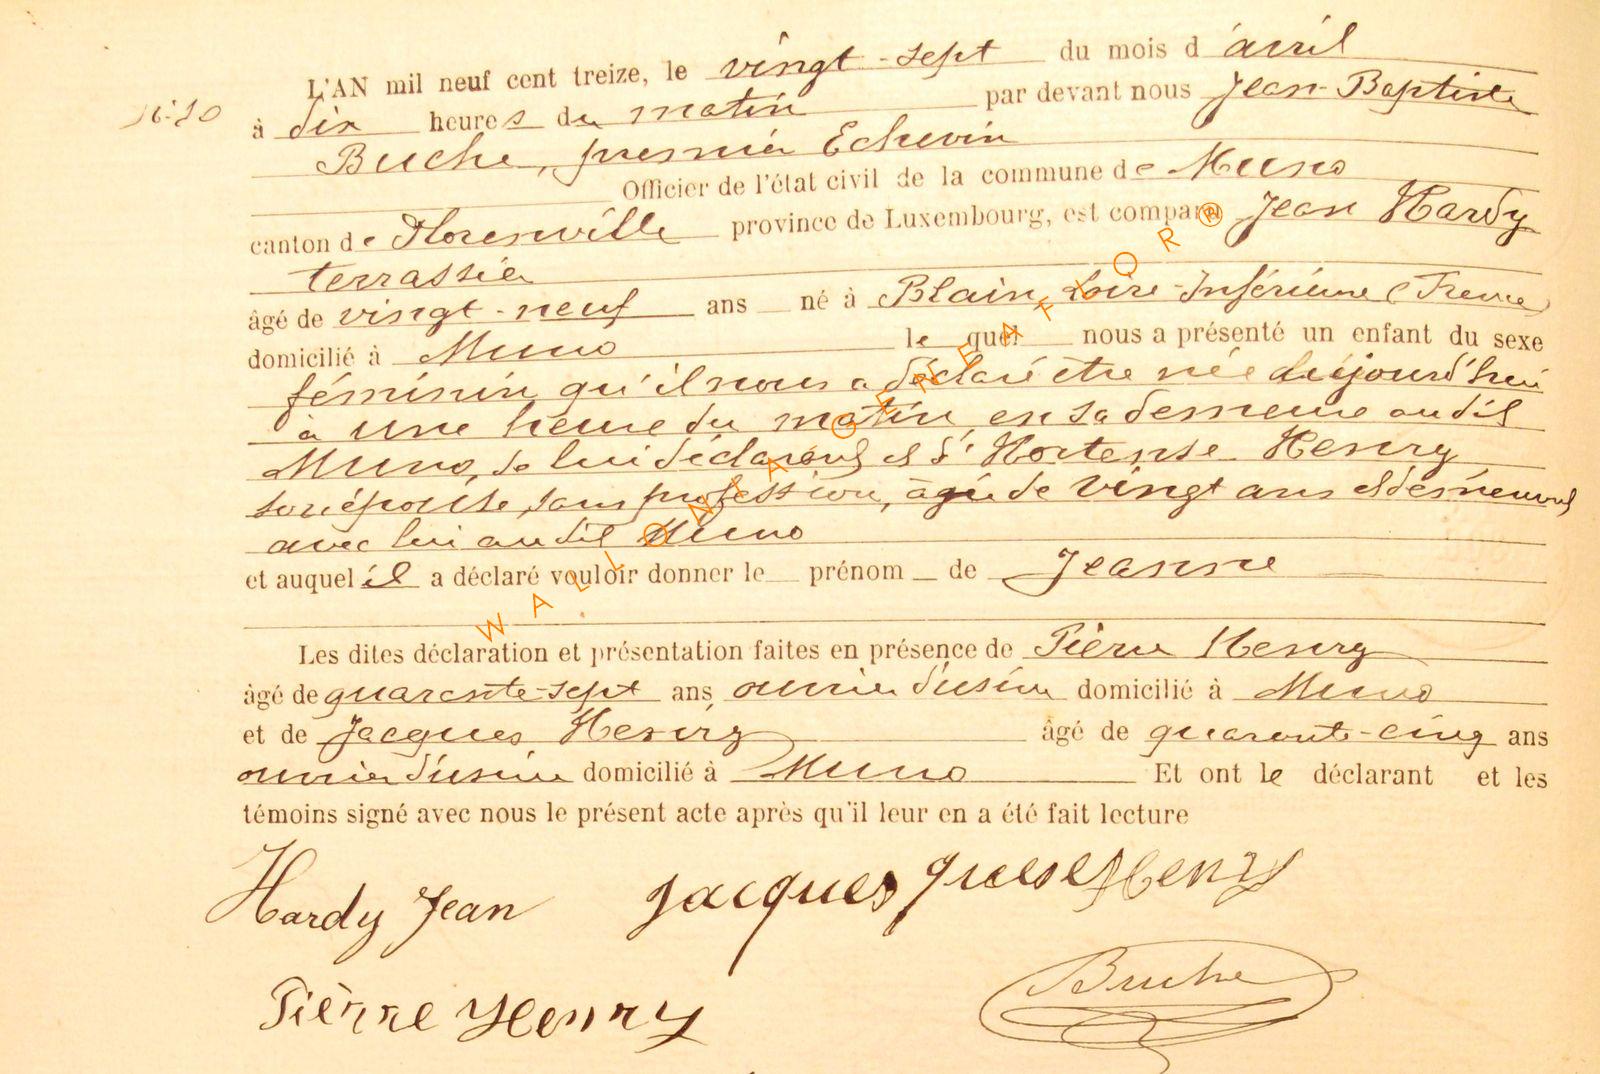 L'AN mil neuf cent treize, le vingt-sept du mois d'avril
à dix heures du matin par devant nous Jean-Baptiste
Buche, premier Echevin
Officier de l'état civil de la commune de Muno
canton de Florenville province de Luxembourg, est comparu Jean Hardy
terrassier
âgé de vingt-neuf ans né à Blain, Loire-Inférieure (France)
domicilié à Muno lequel nous a présenté un enfant du sexe
féminin qu'il nous a déclaré être née aujourd'hui
à une heure du matin, en sa demeure au dit
Muno, de lui déclarant et de Hortense Henry
son épouse, sans profession, âgée de vingt ans et demeurant
avec lui au dit Muno
et auquel il a déclaré vouloir donner le prénom de Jeanne
Les dites déclaration et présentation faites en présence de Pierre Henry
âgé de quarante-sept ans, ouvrier d'usine domicilié à Muno
et de Jacques Henry âgé de quarante-cinq ans
ouvrier d'usine domicilié à Muno Et ont le déclarant et les
témoins signé avec nous le présent acte après qu'il leur en a été fait lecture
Hardy Jean Jacques Henry
Pièrre Henry Buche
WALLONIA GENEAFLOR®